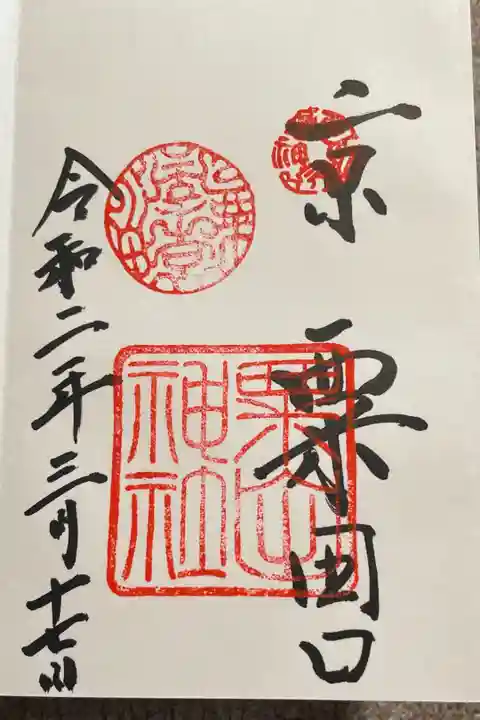 京
粟田口
粟田
神社
令和二年三月十七日